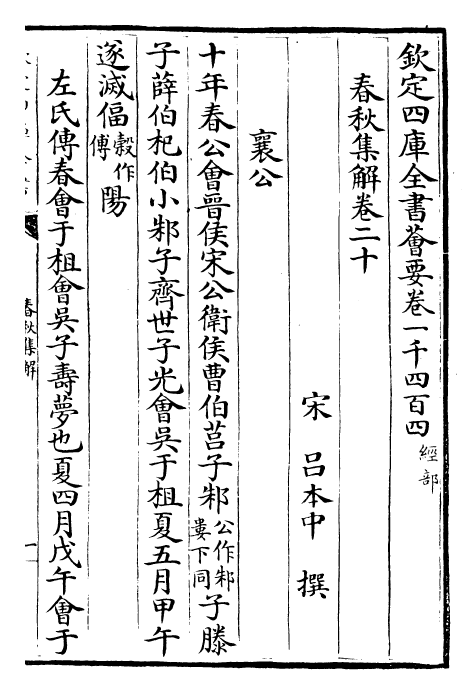 欽定四庫全書薈要卷一千四百四 經部
春秋集解卷二十
宋 呂本中 撰
襄公
十年春公會晉侯宋公衛侯曹伯莒子邾公作邾婁下同子滕
子薛伯杞伯小邾子齊世子光會吳于柤夏五月甲午
遂滅偪穀作傅陽
左氏傳春會于柤會吳子壽夢也夏四月戊午會于
春秋集解
一